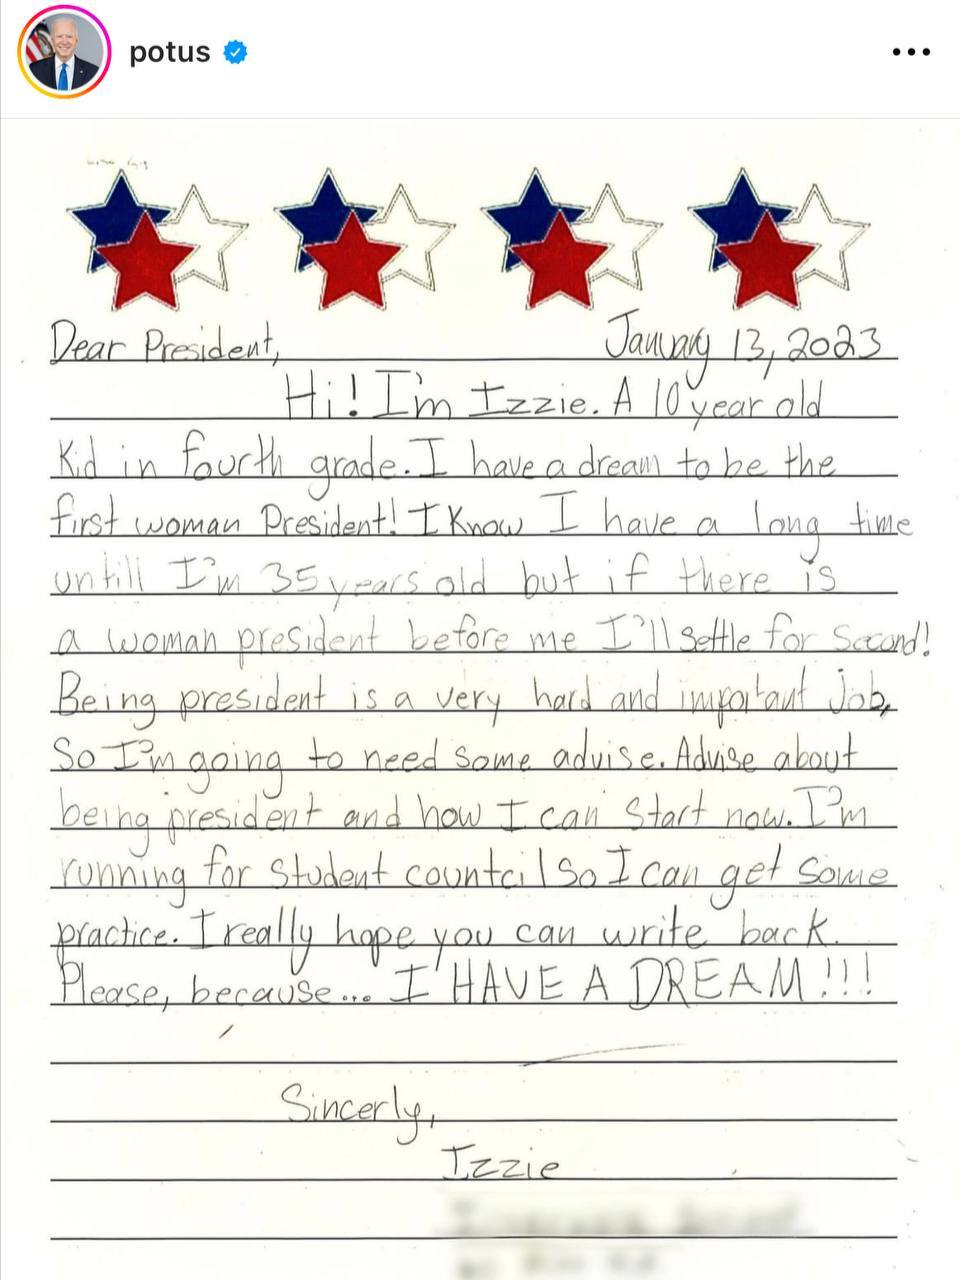 potus
Dear President,
January 13, 2023
Hi! I'm Izzie. A 10 year old
Kid in fourth grade. I have a dream to be the
first woman President! I Know I have a long time
untill I'm 35 years old but if there is
a woman president before me I'll settle for second!
Being president is a very hard and important job,
So I'm going to need some advise. Advise about
being president and how I can start now. I'm
running for student countcil so I can get some
practice. I really hope you can write back.
Please, because... I HAVE A DREAM!!!
Sincerly,
Izzie